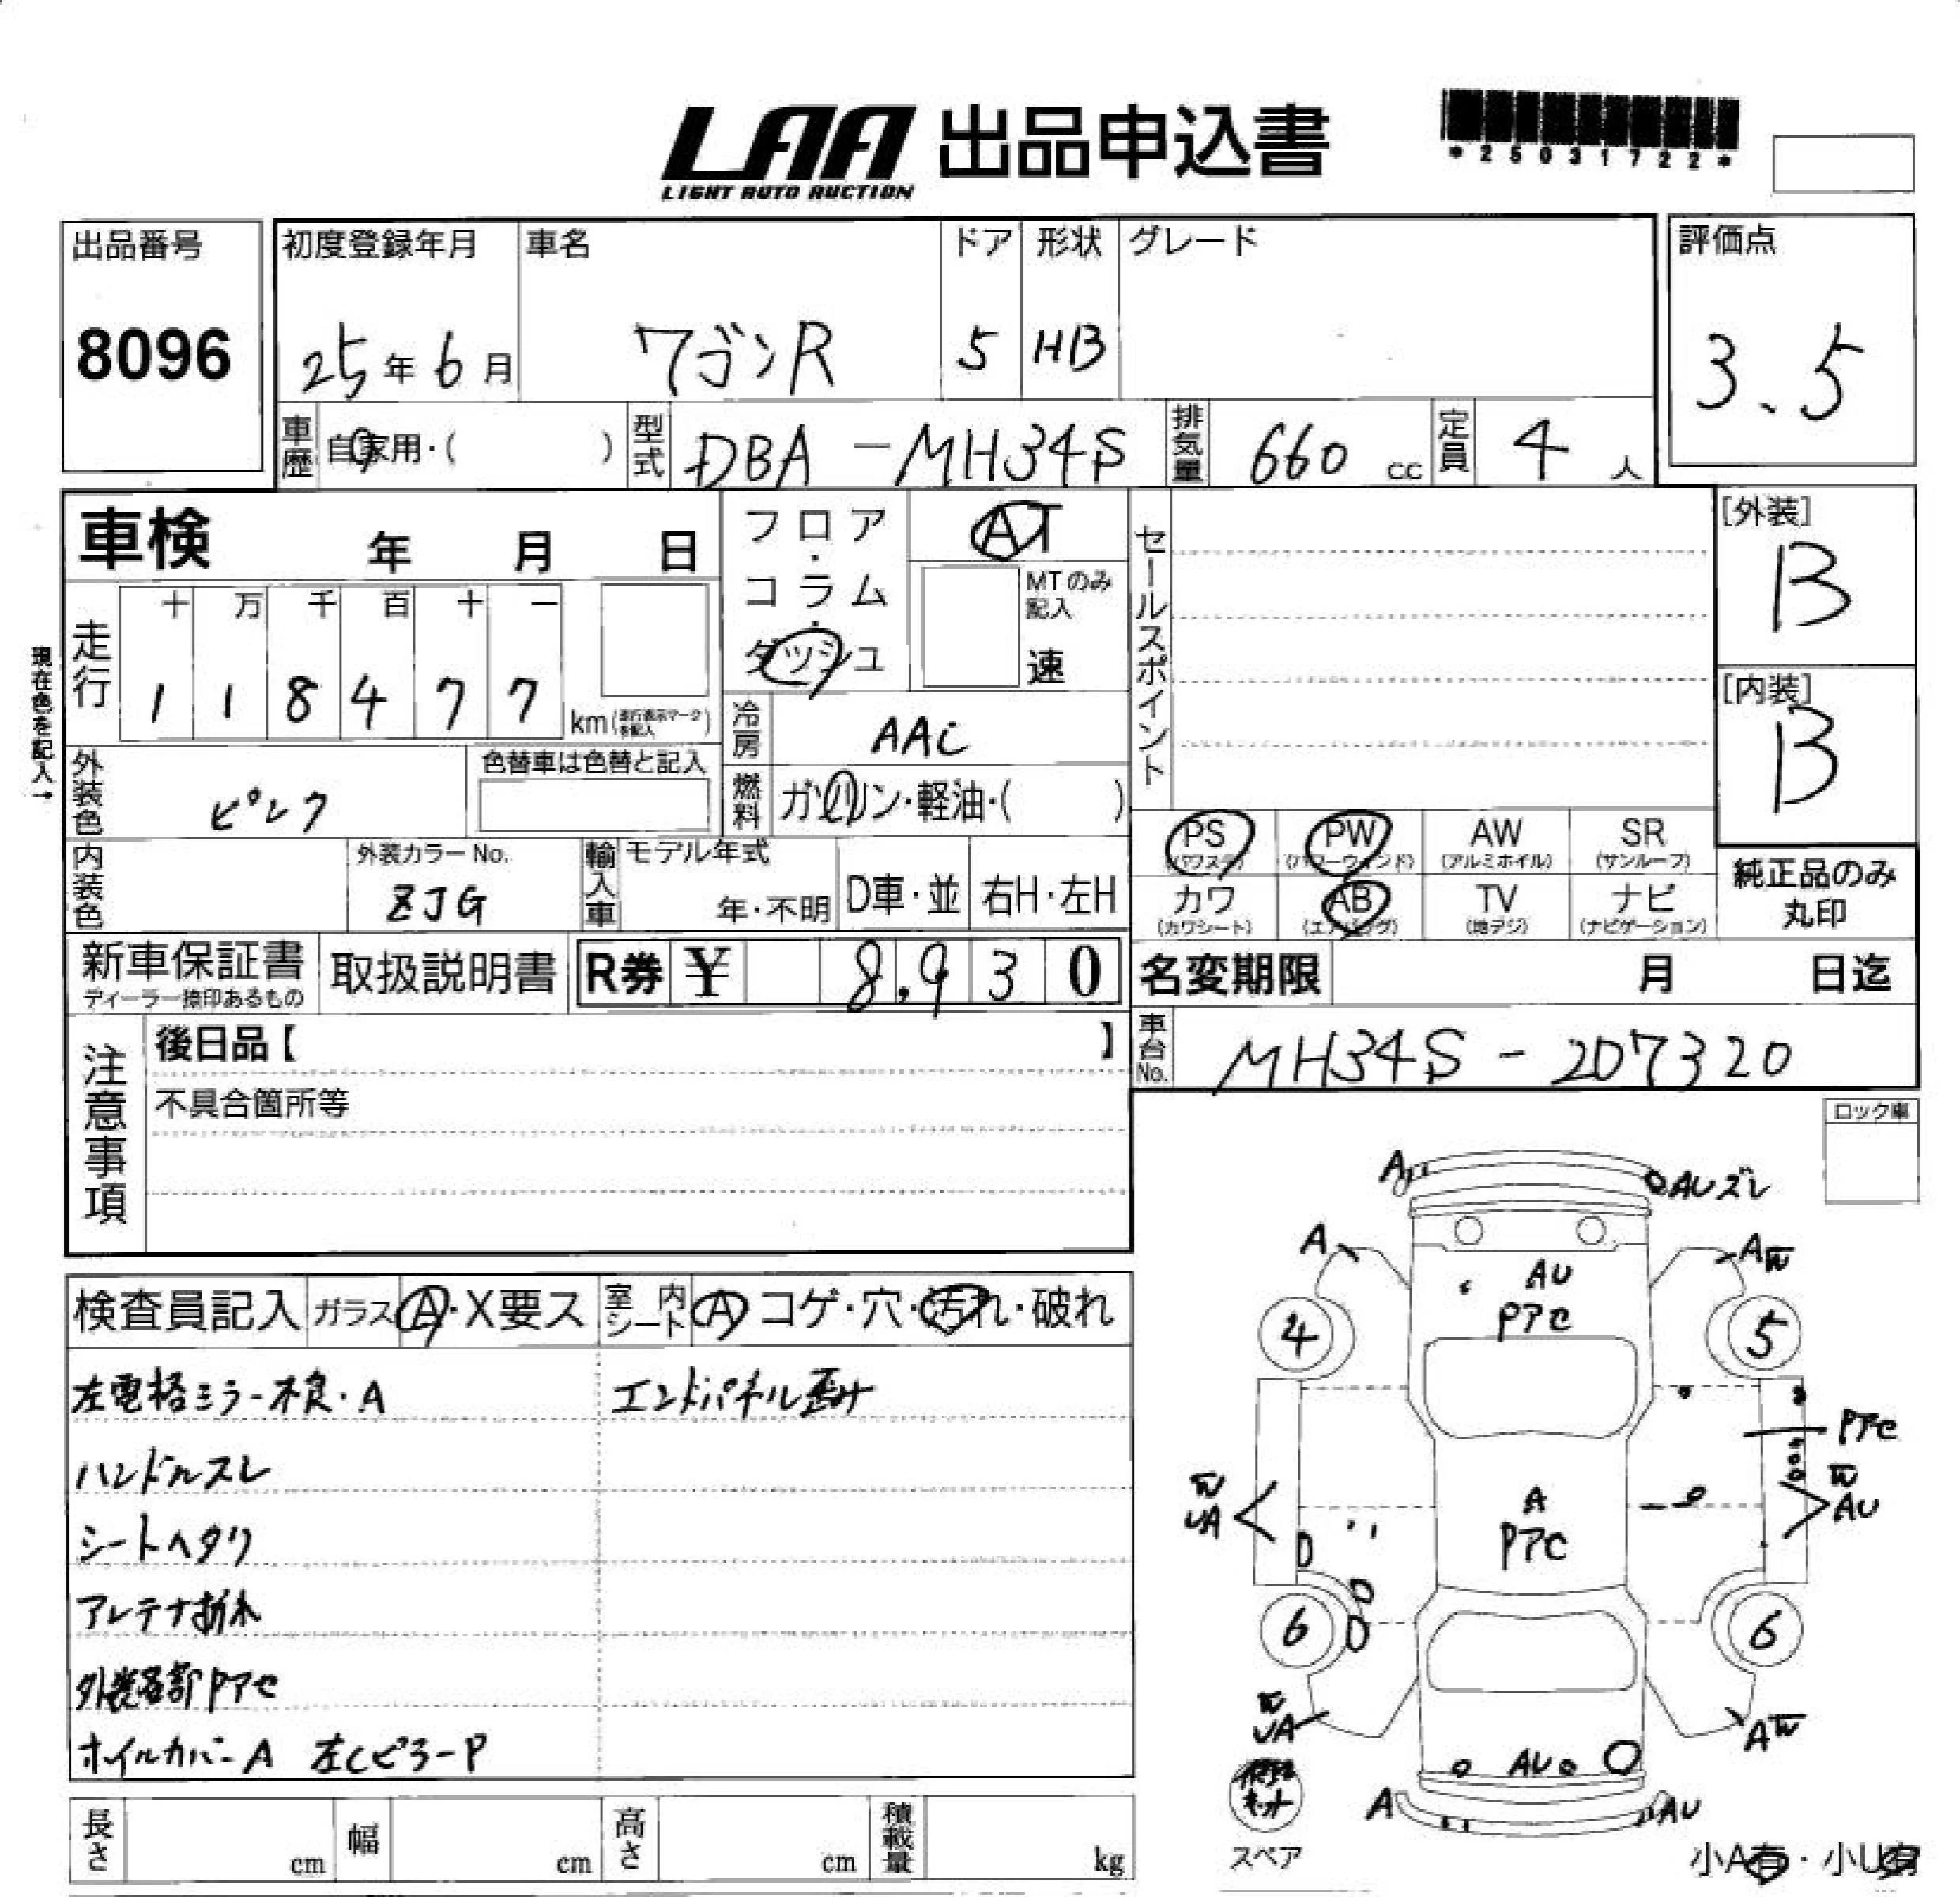 LAA 出品申込書
LIGHT AUTO AUCTION
*25031722*
出品番号
8096
初度登録年月
25年6月
車名
ワゴンR
ドア
5
形状
HB
グレード
評価点
3.5
車歴
自家用・( )
型式
DBA-MH34S
排気量
660 cc
定員
4 人
車検 年 月 日
フロア・コラム・ダッシュ
AT
MTのみ記入
速
セールスポイント
[外装]
B
[内装]
B
現在色を記入→
走行
十 万 千 百 十 一
1 1 8 4 7 7 km (走行表示マークを記入)
冷房
AAC
外装色
ピンク
色替車は色替と記入
燃料
ガソリン・軽油・( )
内装色
外装カラーNo.
ZJG
輸入車
モデル年式
年・不明
D車・並
右H・左H
PS (パワステ)
PW (パワーウィンド)
AW (アルミホイル)
SR (サンルーフ)
カワ (カワシート)
AB (エアバッグ)
TV (地デジ)
ナビ (ナビゲーション)
純正品のみ丸印
新車保証書
ディーラー捺印あるもの
取扱説明書
R券 ¥ 8,930
名変期限 月 日迄
車台No.
MH34S-207320
注意事項
後日品【 】
不具合箇所等
ロック車
検査員記入
ガラス A・X要ス
室内シート A コゲ・穴・汚れ・破れ
左電格ミラー不良・A
エンドパネル歪み
ハンドルスレ
シートヘタリ
アンテナ折れ
外装各部Pアセ
ホイルカバーA 左CピラーP
A
AUズレ
A
A
AU
Pアセ
4
5
Pアセ
AU
UA
A
Pアセ
6
6
UA
A
AU
A
AU
スペア
小A有・小U有
長さ cm
幅 cm
高さ cm
積載量 kg